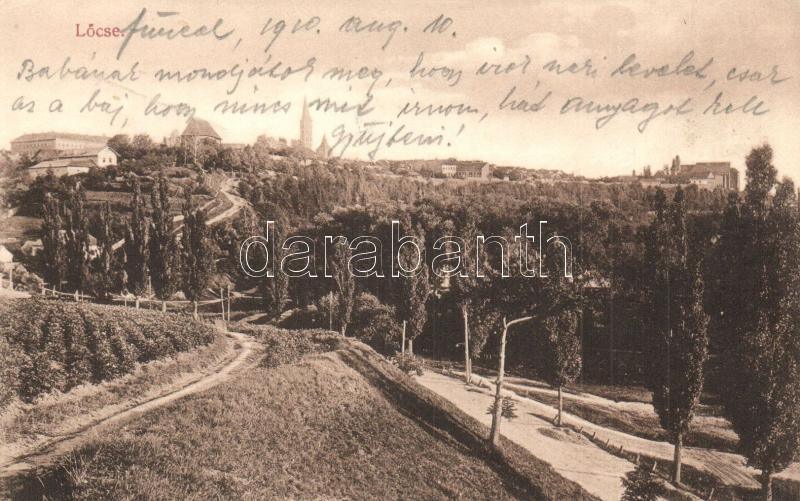 Lőcse.
1910. aug. 10.
Babának mondjátok meg, hogy írok neki levelet, csak
az a baj, hogy nincs mit írnom, hát anyagot kell
gyűjteni!
darabanth